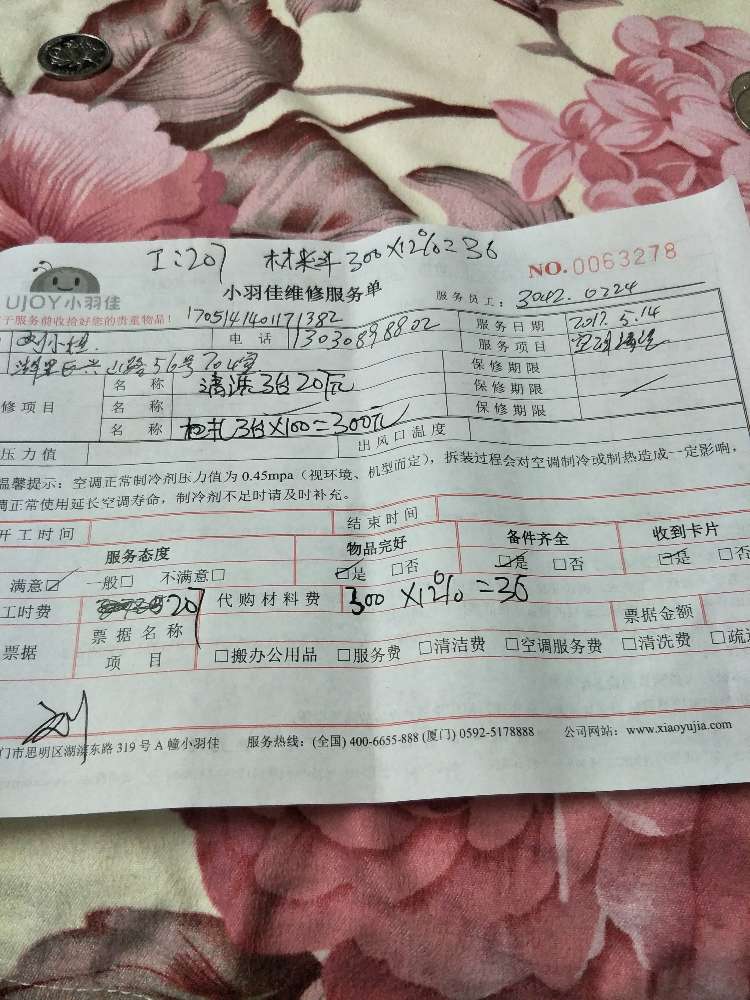 工:207 材料 300×12%=36
NO.0063278
UJOY小羽佳
小羽佳维修服务单
服务员工: 3042.0224
于服务前收拾好您的贵重物品!
1705141401171382
电话 13030898802 服务日期 2017.5.14
长兴山路56号704室 服务项目 空调清洗
名称 清洗3台207元 保修期限
修项目 名称 保修期限
名称 3台×100=300元 保修期限
压力值 出风口温度
温馨提示:空调正常制冷剂压力值为 0.45mpa(视环境、机型而定),拆装过程会对空调制冷或制热造成一定影响,
调正常使用延长空调寿命,制冷剂不足时请及时补充。
开工时间 结束时间
服务态度 物品完好 备件齐全 收到卡片
满意☑ 一般□ 不满意□ ☑是 □否 ☑是 □否 ☑是 □否
工时费 207 代购材料费 300×12%=36
票据 票据名称 票据金额
项目 □搬办公用品 □服务费 □清洁费 □空调服务费 □清洗费 □疏
门市思明区湖滨东路 319 号 A 幢小羽佳 服务热线:(全国) 400-6655-888 (厦门) 0592-5178888 公司网站:www.xiaoyujia.com